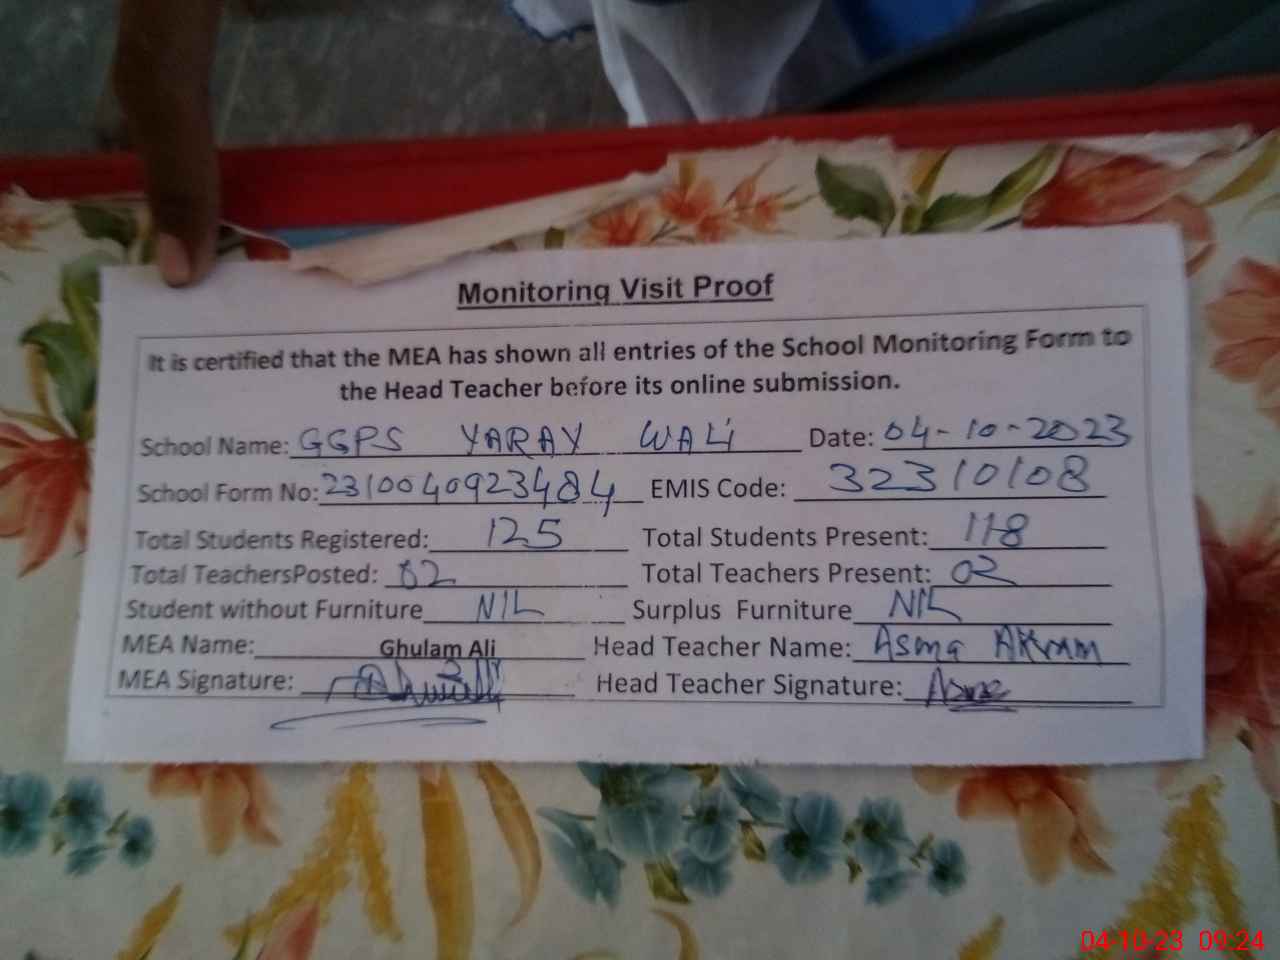 Monitoring Visit Proof
It is certified that the MEA has shown all entries of the School Monitoring Form to
the Head Teacher before its online submission.
School Name: GGPS YARAY WALI Date: 04-10-2023
School Form No: 2310040923484 EMIS Code: 32310108
Total Students Registered: 125 Total Students Present: 118
Total TeachersPosted: 02 Total Teachers Present: 02
Student without Furniture NIL Surplus Furniture NIL
MEA Name: Ghulam Ali Head Teacher Name: Asma AKram
MEA Signature: Head Teacher Signature: Asma
04-10-23 09:24